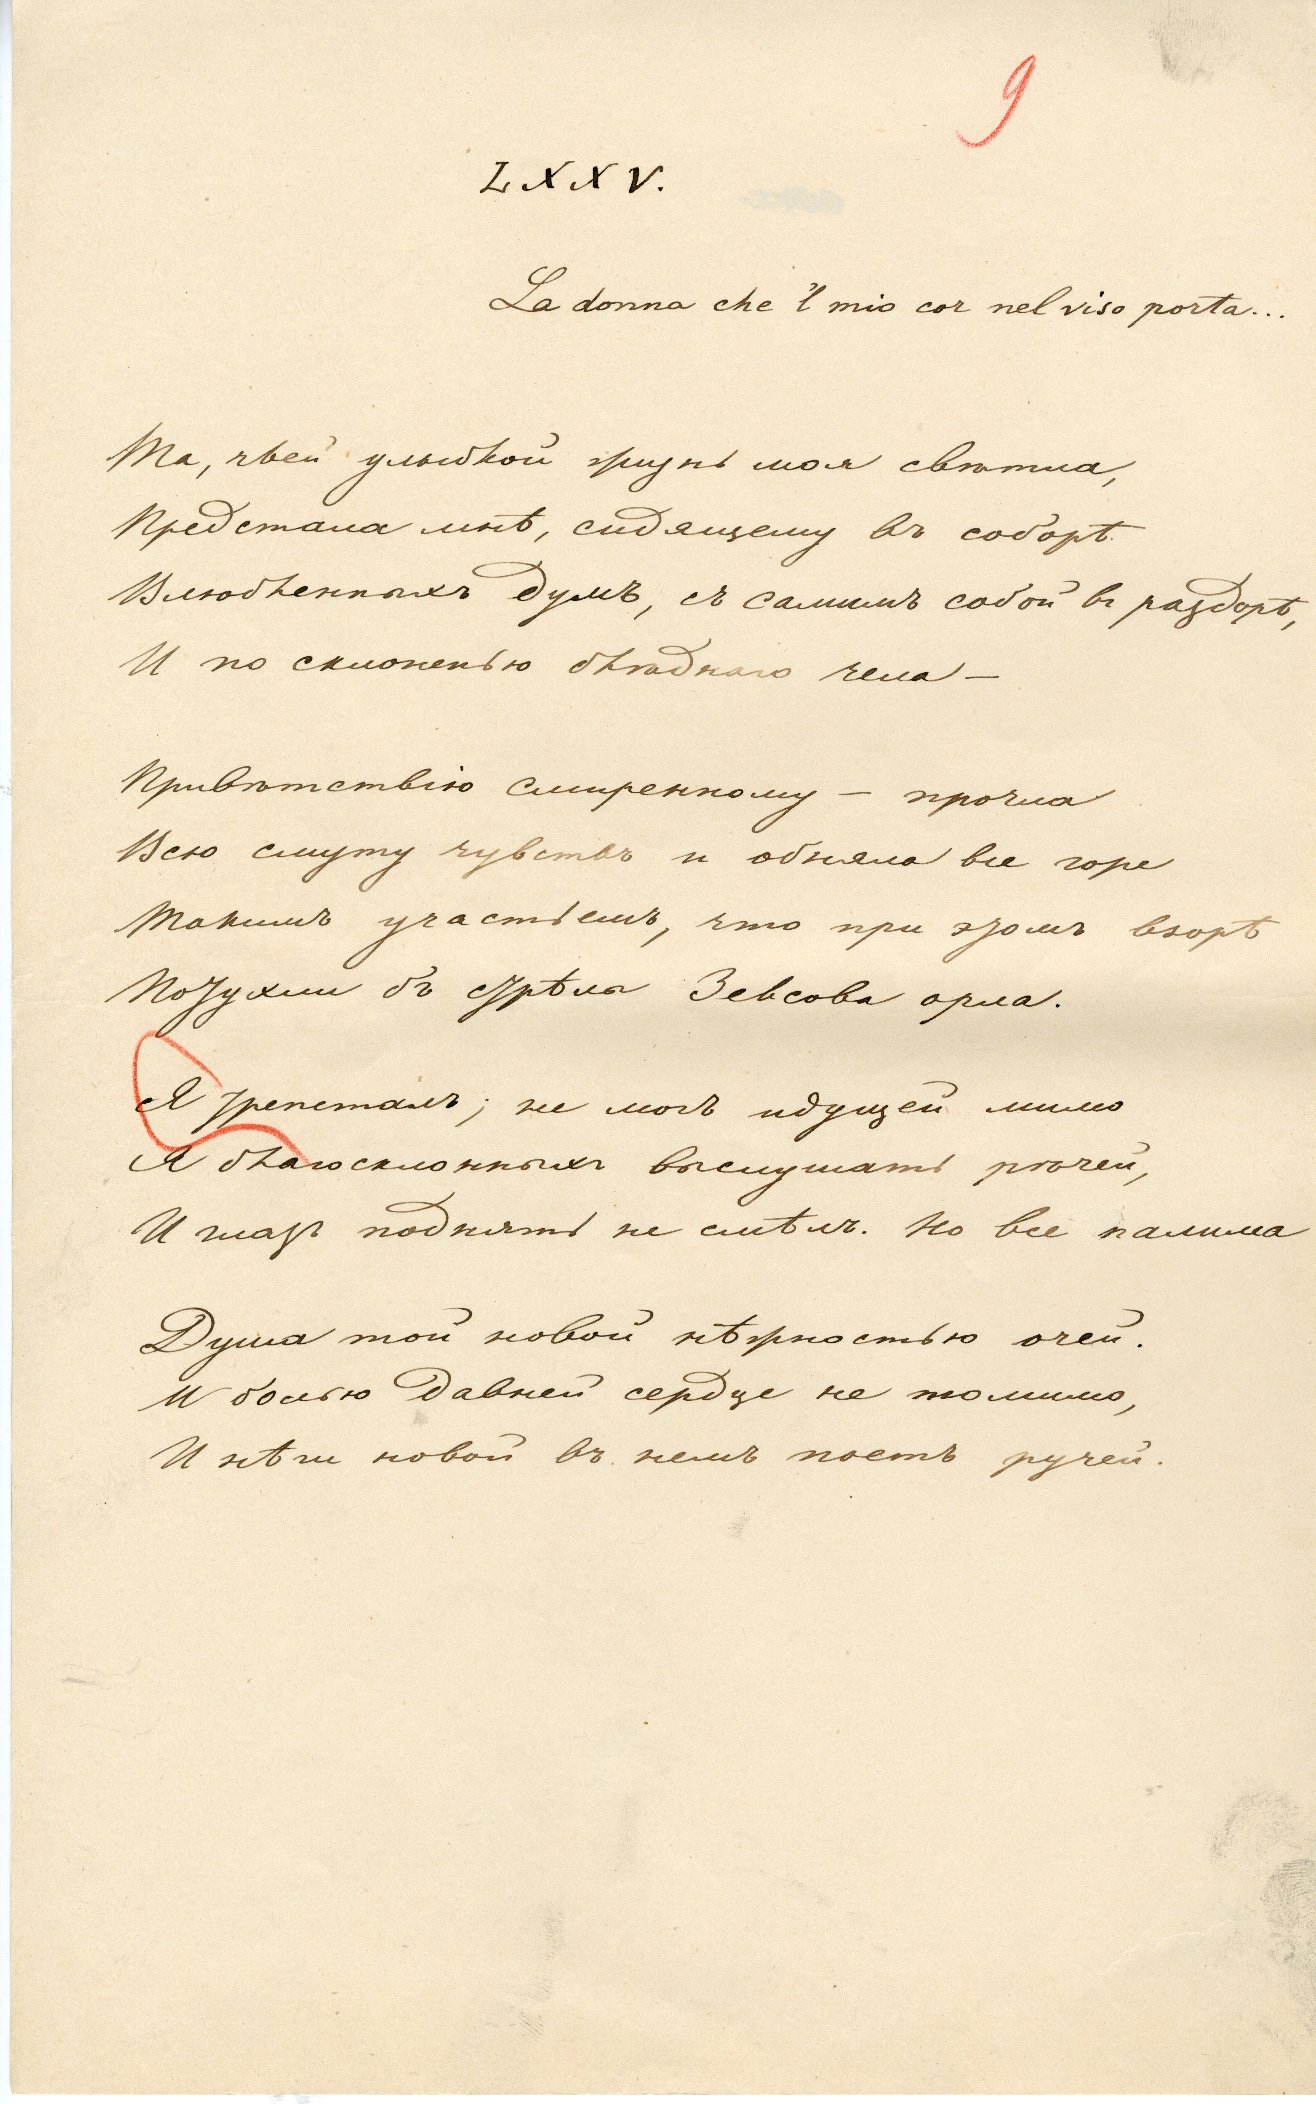 9
LXXV.
La donna che 'l mio cor nel viso porta...
Та, чьей улыбкой жизнь моя свѣтла,
Предстала мнѣ, сидящему въ соборѣ
Влюбленныхъ думъ, съ самимъ собой въ раздорѣ,
И по склоненью блѣднаго чела —
Привѣтствію смиренному — прочла
Всю смуту чувствъ и обняла все горе
Такимъ участьемъ, что при этомъ взорѣ
Потухли бъ стрѣлы Зевсова орла.
Я трепеталъ; не могъ идущей мимо
Я благосклонныхъ выслушать рѣчей,
И глазъ поднять не смѣлъ. Но все палима
Душа той новой нѣжностью очей.
И болью давней сердце не томимо,
И нѣги новой въ немъ поетъ ручей.